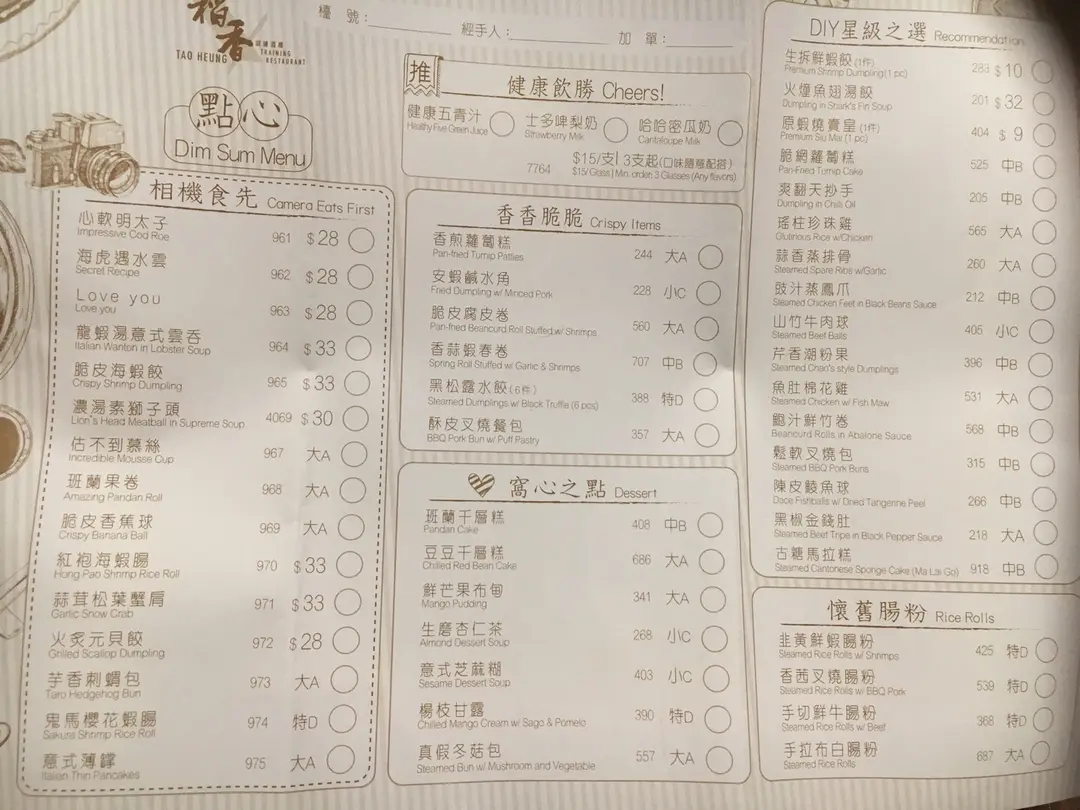 稻香
TAO HEUNG
TRAINING
RESTAURANT
檯 號：
經手人：
加 單：
點心
Dim Sum Menu
相機食先 Camera Eats First
心軟明太子
Impressive Cod Roe
961 $28
海虎遇水雲
Secret Recipe
962 $28
Love you
Love you
963 $28
龍蝦湯意式雲吞
Italian Wanton in Lobster Soup
964 $33
脆皮海蝦餃
Crispy Shrimp Dumpling
965 $33
濃湯素獅子頭
Lion's Head Meatball in Supreme Soup
4069 $30
估不到慕絲
Incredible Mousse Cup
967 大A
班蘭果卷
Amazing Pandan Roll
968 大A
脆皮香蕉球
Crispy Banana Ball
969 大A
紅袍海蝦腸
Hong Pao Shrimp Rice Roll
970 $33
蒜茸松葉蟹肩
Garlic Snow Crab
971 $33
火炙元貝餃
Grilled Scallop Dumpling
972 $28
芋香刺蝟包
Taro Hedgehog Bun
973 大A
鬼馬櫻花蝦腸
Sakura Shrimp Rice Roll
974 特D
意式薄罉
Italian Thin Pancakes
975 大A
推
健康飲勝 Cheers!
健康五青汁
Healthy Five Green Juice
士多啤梨奶
Strawberry Milk
哈哈密瓜奶
Canteloupe Milk
7764
$15/支| 3支起(口味隨意配搭)
$15/Glass | Min. order: 3 Glasses (Any flavors)
香香脆脆 Crispy Items
香煎蘿蔔糕
Pan-fried Turnip Patties
244 大A
安蝦鹹水角
Fried Dumpling w/ Minced Pork
228 小C
脆皮腐皮卷
Pan-fried Beancurd Roll Stuffed w/ Shrimps
560 大A
香蒜蝦春卷
Spring Roll Stuffed w/ Garlic & Shrimps
707 中B
黑松露水餃(6件)
Steamed Dumplings w/ Black Truffle (6 pcs)
388 特D
酥皮叉燒餐包
BBQ Pork Bun w/ Puff Pastry
357 大A
窩心之點 Dessert
班蘭千層糕
Pandan Cake
408 中B
豆豆千層糕
Chilled Red Bean Cake
686 大A
鮮芒果布甸
Mango Pudding
341 大A
生磨杏仁茶
Almond Dessert Soup
268 小C
意式芝麻糊
Sesame Dessert Soup
403 小C
楊枝甘露
Chilled Mango Cream w/ Sago & Pomelo
390 特D
真假冬菇包
Steamed Bun w/ Mushroom and Vegetable
557 大A
DIY星級之選 Recommendation
生拆鮮蝦餃(1件)
Premium Shrimp Dumpling(1 pc)
283 $10
火燑魚翅湯餃
Dumpling in Shark's Fin Soup
201 $32
原蝦燒賣皇(1件)
Premium Siu Mai (1 pc)
404 $9
脆網蘿蔔糕
Pan-Fried Turnip Cake
525 中B
爽翻天抄手
Dumpling in Chilli Oil
205 中B
瑤柱珍珠雞
Glutinous Rice w/Chicken
565 大A
蒜香蒸排骨
Steamed Spare Ribs w/Garlic
260 大A
豉汁蒸鳳爪
Steamed Chicken Feet in Black Beans Sauce
212 中B
山竹牛肉球
Steamed Beef Balls
405 小C
芹香潮粉果
Steamed Chao's style Dumplings
396 中B
魚肚棉花雞
Steamed Chicken w/ Fish Maw
531 大A
鮑汁鮮竹卷
Beancurd Rolls in Abalone Sauce
568 中B
鬆軟叉燒包
Steamed BBQ Pork Buns
315 中B
陳皮鯪魚球
Dace Fishballs w/ Dried Tangerine Peel
266 中B
黑椒金錢肚
Steamed Beef Tripe in Black Pepper Sauce
218 大A
古糖馬拉糕
Steamed Cantonese Sponge Cake (Ma Lai Go)
918 中B
懷舊腸粉 Rice Rolls
韭黃鮮蝦腸粉
Steamed Rice Rolls w/ Shrimps
425 特D
香茜叉燒腸粉
Steamed Rice Rolls w/ BBQ Pork
539 特D
手切鮮牛腸粉
Steamed Rice Rolls w/ Beef
368 特D
手拉布白腸粉
Steamed Rice Rolls
687 大A